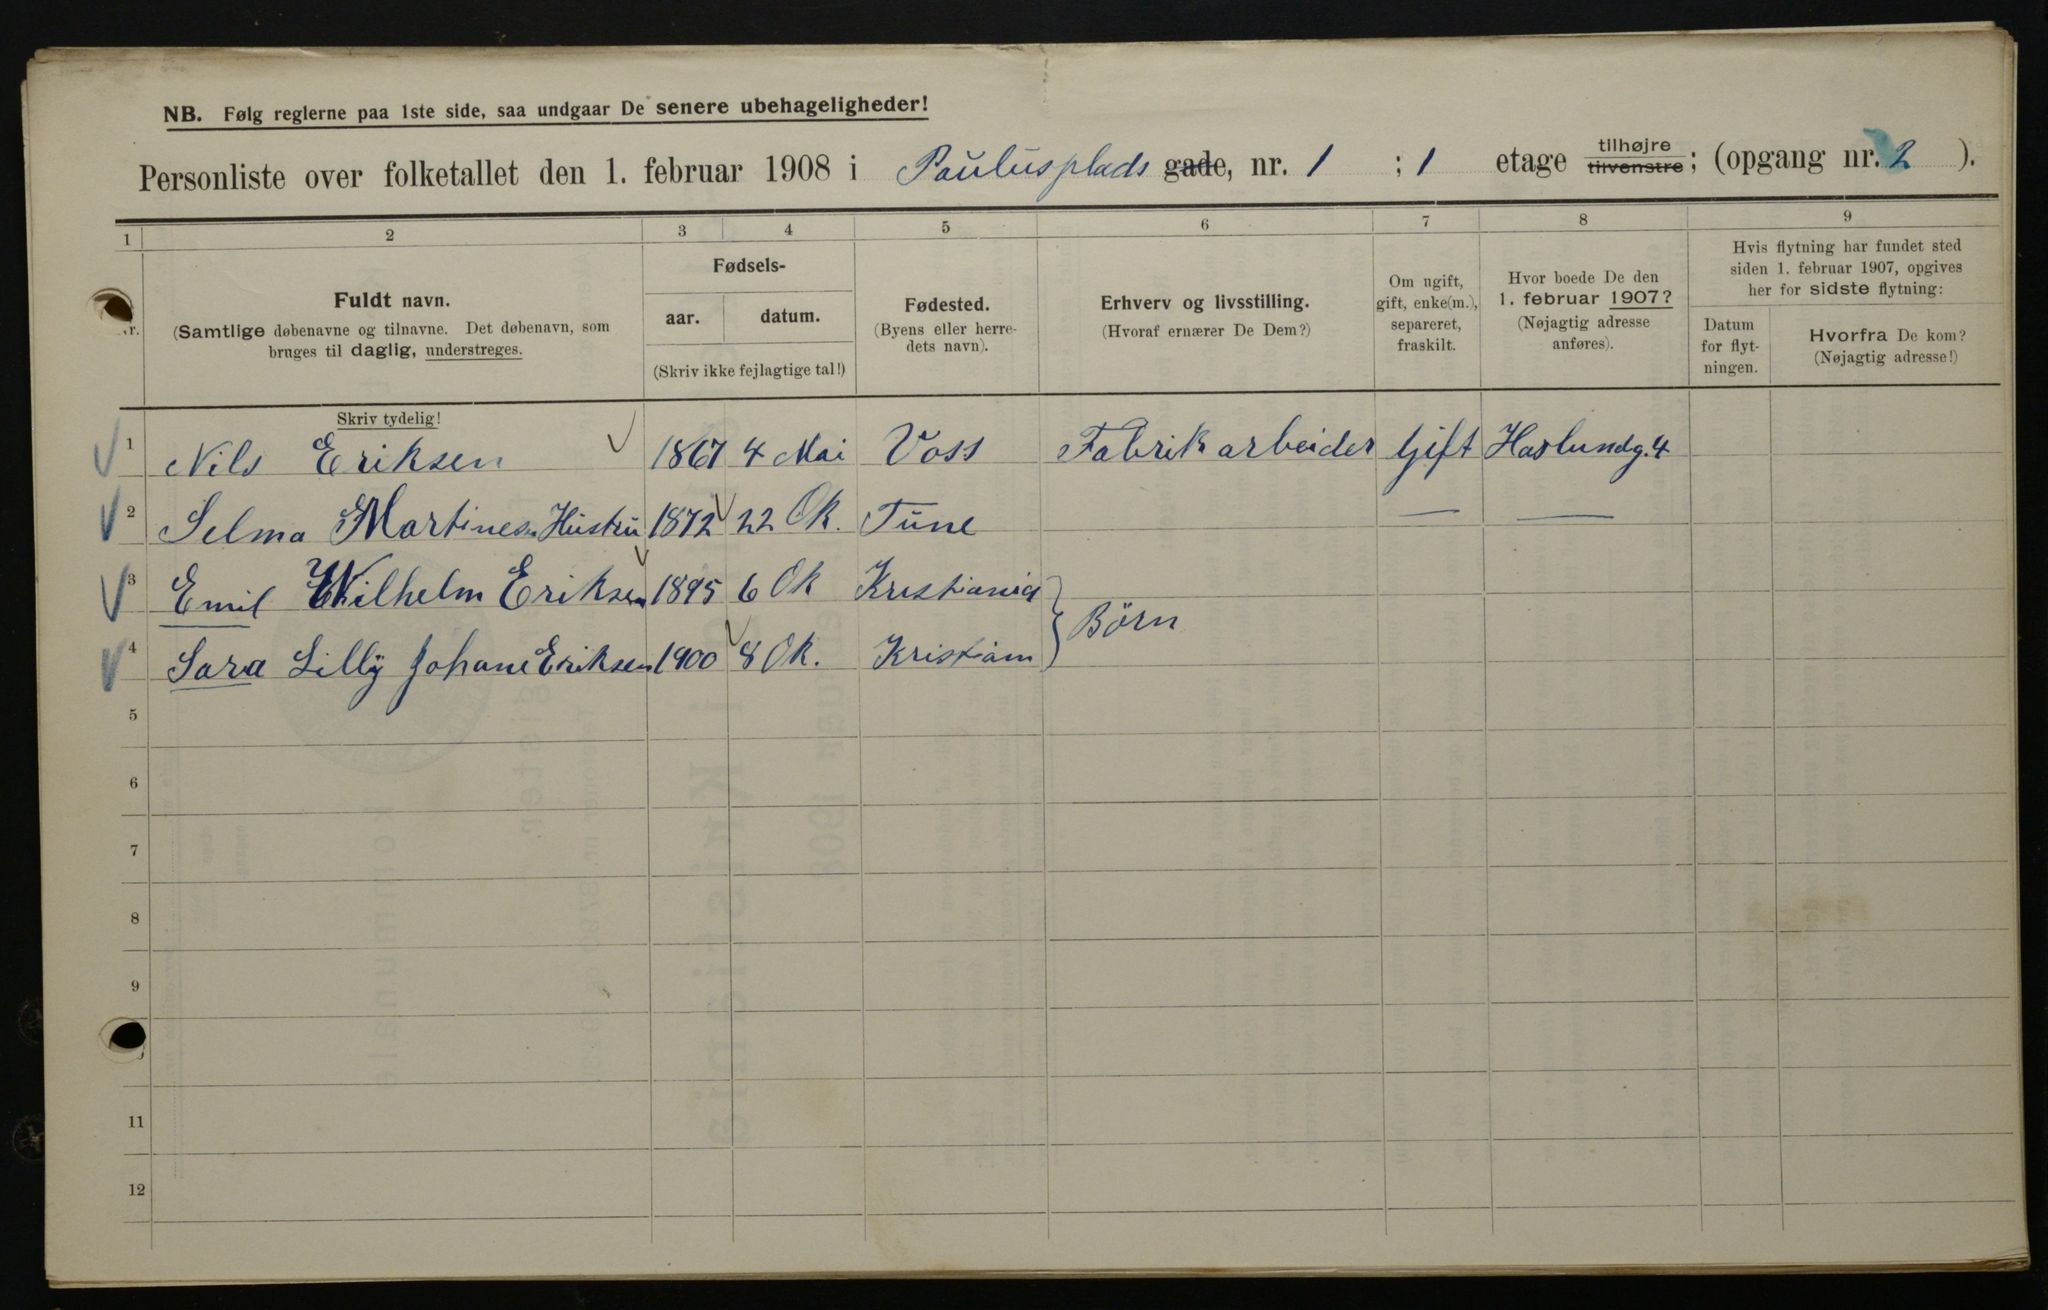 NB. Følg reglerne paa 1ste side, saa undgaar De senere ubehageligheder!
Personliste over folketallet den 1. februar 1908 i Paulusplads gade, nr. 1 ; 1 etage tilhøjre tilvenstre; (opgang nr. 2 ).
1 2 3 4 5 6 7 8 9
Nr.
Fuldt navn.
(Samtlige døbenavne og tilnavne. Det døbenavn, som
bruges til daglig, understreges.
Fødsels-
aar. datum.
(Skriv ikke fejlagtige tal!)
Fødested.
(Byens eller herre-
dets navn).
Erhverv og livsstilling.
(Hvoraf ernærer De Dem?)
Om ugift,
gift, enke(m.),
separeret,
fraskilt.
Hvor boede De den
1. februar 1907?
(Nøjagtig adresse
anføres).
Hvis flytning har fundet sted
siden 1. februar 1907, opgives
her for sidste flytning:
Datum
for flyt-
ningen.
Hvorfra De kom?
(Nøjagtig adresse!)
Skriv tydelig!
1 Nils Eriksen 1867 4 Mai Voss Fabrikarbeider Gift Haslundg. 4
2 Selma Martinesen Hustru 1872 22 Ok. Tune — —
3 Emil Wilhelm Eriksen 1895 6 Ok Kristiania
Børn
4 Sara Lilly Johane Eriksen 1900 8 Ok. Kristiam
5
6
7
8
9
11
12